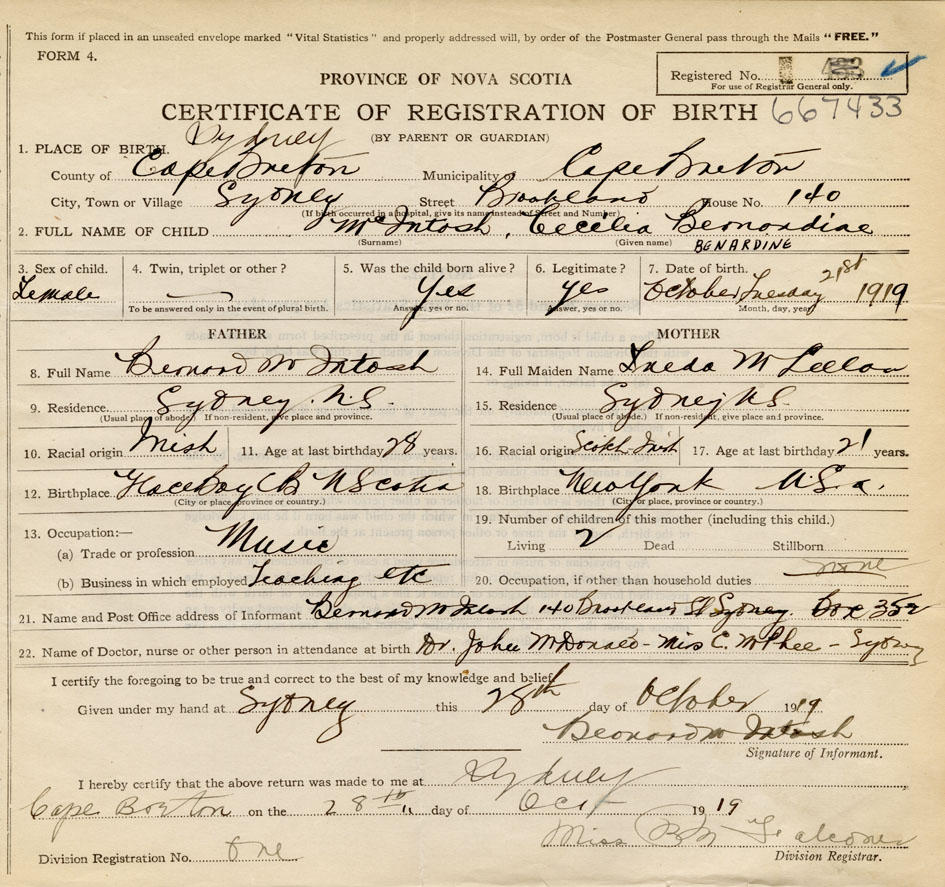 This form if placed in an unsealed envelope marked "Vital Statistics" and properly addressed will, by order of the Postmaster General pass through the Mails "FREE."
FORM 4.
PROVINCE OF NOVA SCOTIA
Registered No.
For use of Registrar General only.
CERTIFICATE OF REGISTRATION OF BIRTH 667433
(BY PARENT OR GUARDIAN)
Sydney
1. PLACE OF BIRTH.
County of Cape Breton Municipality of Cape Breton
City, Town or Village Sydney Street Brookland House No. 140
(If birth occurred in a hospital, give its name instead of Street and Number)
2. FULL NAME OF CHILD McIntosh, Cecelia Bernardine
(Surname) (Given name) BENARDINE
3. Sex of child. 4. Twin, triplet or other? 5. Was the child born alive? 6. Legitimate? 7. Date of birth.
Female — Yes yes October Tuesday 21st 1919
To be answered only in the event of plural birth. Answer, yes or no. Answer, yes or no. Month, day, year
FATHER MOTHER
8. Full Name Bernard McIntosh 14. Full Maiden Name
9. Residence Sydney. N.S. 15. Residence Sydney N.S.
(Usual place of abode.) If non-resident, give place and province. (Usual place of abode.) If non-resident, give place and province.
10. Racial origin Irish 11. Age at last birthday 28 years. 16. Racial origin Scotch Irish 17. Age at last birthday 21 years.
12. Birthplace Glace Bay C B N Scotia 18. Birthplace New York U.S.a.
(City or place, province or country.) (City or place, province or country.)
13. Occupation:— 19. Number of children of this mother (including this child.)
(a) Trade or profession Music Living 2 Dead Stillborn
(b) Business in which employed Teaching etc 20. Occupation, if other than household duties none
21. Name and Post Office address of Informant Bernard McIntosh 140 Brookland St Sydney. Box 352
22. Name of Doctor, nurse or other person in attendance at birth Dr. John McDonald - Miss C. McPhee - Sydney
I certify the foregoing to be true and correct to the best of my knowledge and belief.
Given under my hand at Sydney this 28th day of October 1919
Bernard McIntosh
Signature of Informant.
I hereby certify that the above return was made to me at Sydney
Cape Breton on the 28th day of Oct 1919
Miss Falconer
Division Registration No. One Division Registrar.